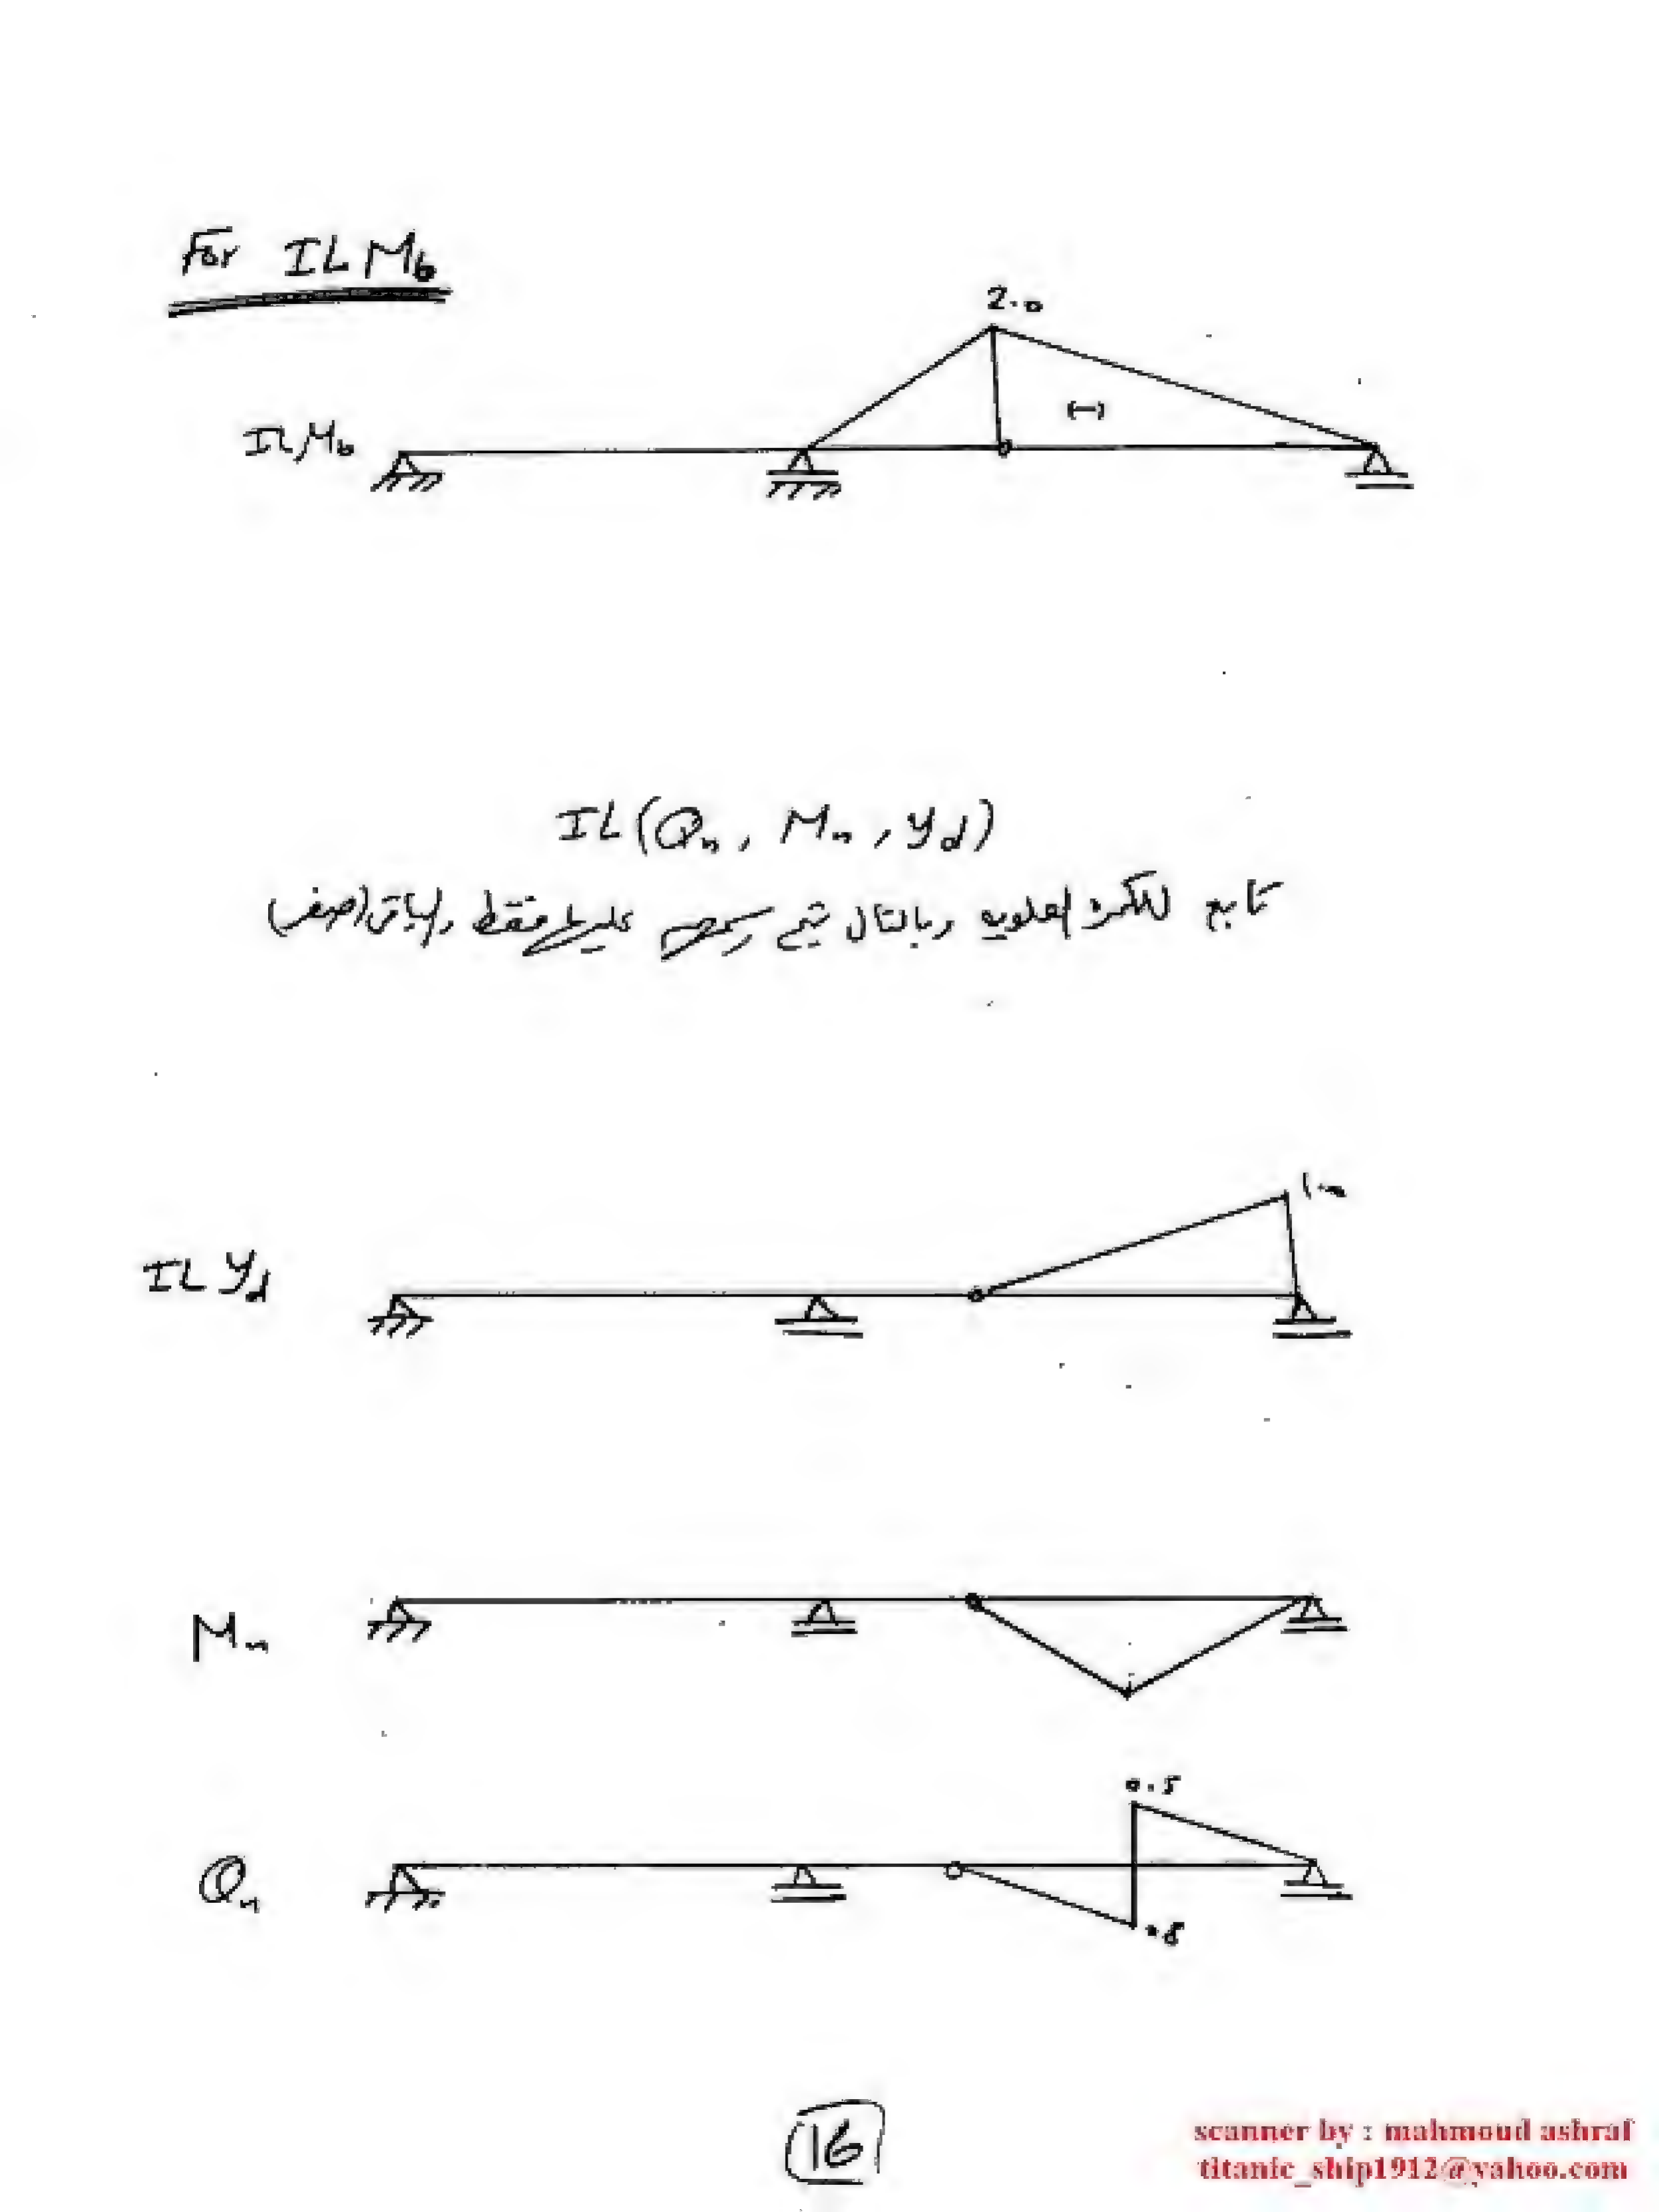 For IL Mb
2.0
(-)
IL Mb
IL (Qn, Mn, yd)
تابع للكمرة العلويه وبالتالى يتم رسمه عليها فقط والباقى (صفر)
IL yd
Mn
0.5
Qn
16
scanner by : mahmoud ashraf
titanic_ship1912@yahoo.com